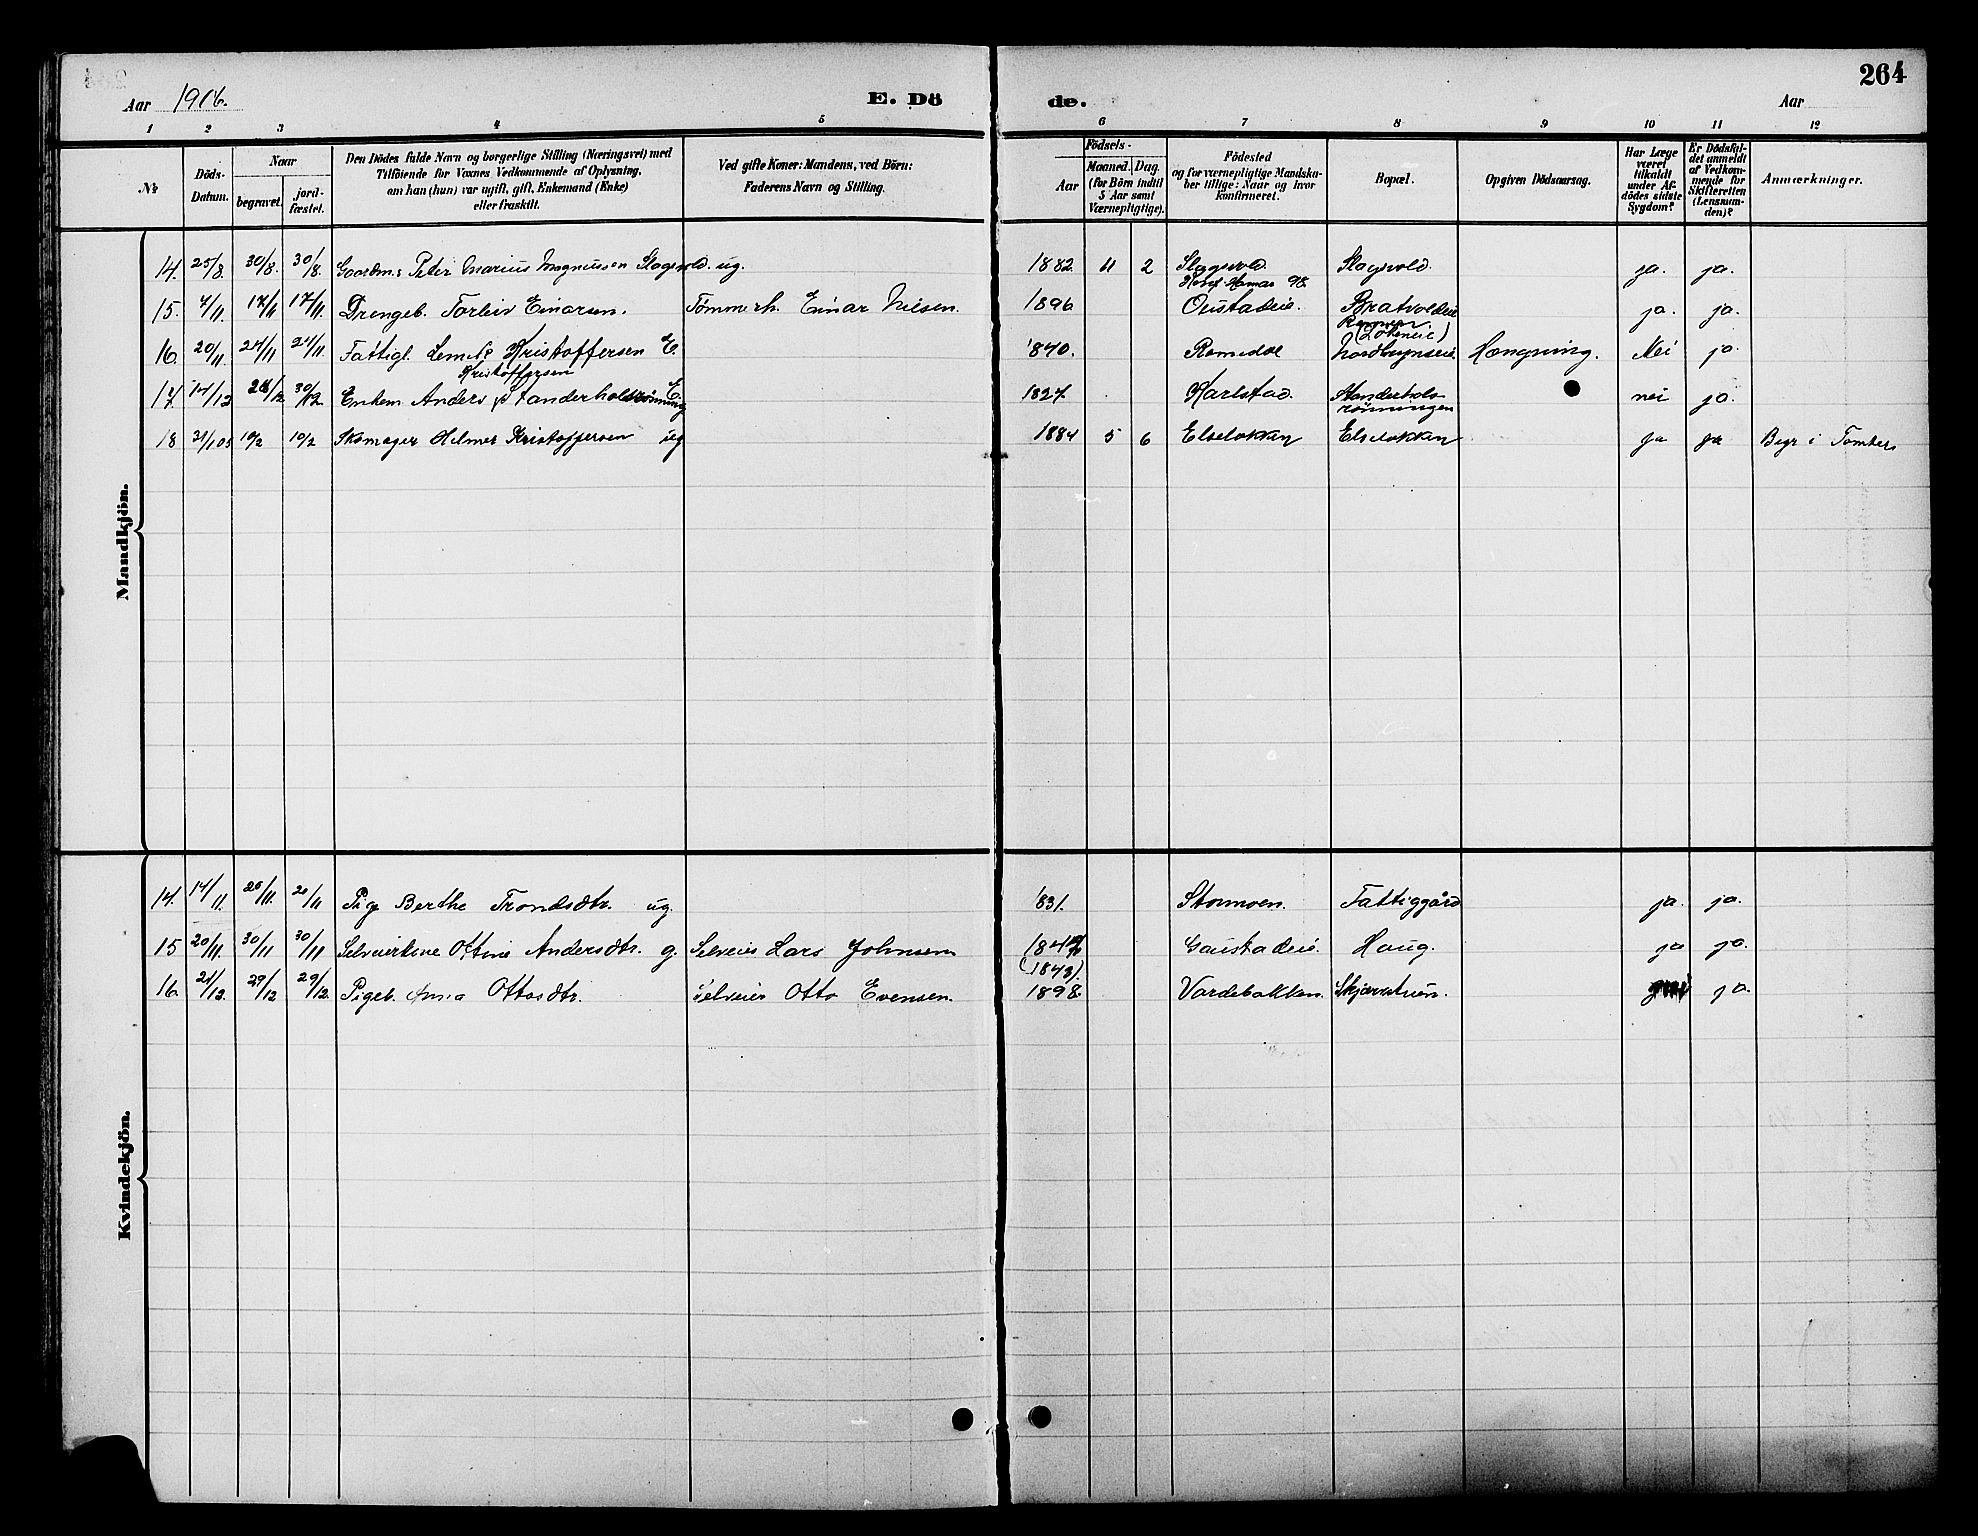 264
Aar 1906. E. Dö de. Aar
1 2 3 4 5 6 7 8 9 10 11 12
№ Döds-Datum. Naar begravet. jord-fæstet. Den Dödes fulde Navn og borgerlige Stilling (Næringsvei) med Tilföiende for Voxnes Vedkommende af Oplysning, om han (hun) var ugift, gift, Enkemand (Enke) eller fraskilt. Ved gifte Koner: Mandens, ved Börn: Faderens Navn og Stilling. Födsels- Aar Maaned. Dag. (for Börn indtil 5 Aar samt Værnepligtige). Födested og for værnepligtige Mandskaber tillige: Naar og hvor konfirmeret. Bopæl. Opgiven Dödsaarsag. Har Læge været tilkaldt under Afdödes sidste Sygdom? Er Dödsfaldet anmeldt af Vedkommende for Skifteretten (Lensmanden)? Anmærkninger.
Mandkjön.
14. 25/8. 30/8. 30/8. Gaardm.s Peter Marius Magnussen Slagsvold. ug. 1882. 11 2 Slagsvold. Slagsvold. ja. ja.
Konf. Hamar 98.
15. 7/11. 17/11 17/11. Drengeb. Torleiv Einarsen. Tømmerh. Einar Nilsen. 1896. Oustadeie. Bratvoldeie ja. ja.
(Løteneie)
16. 20/11. 24/11 24/11. Fattigl. Kristoffersen E. 1840. Romedal Nordbynseie Hængning. Nei ja.
Kristoffersen
17. 14/12 28/12 30/12. Enkem. Anders Standerholsrønning E. 1827. Karlstad. Standerholsrønningen nei ja.
18 31/1 05 10/2 10/2 Skomager Helmer Kristoffersen ug 1884 5 6 Elselokkan Elselokkan ja ja Begr i Tomter
Kvindekjön.
14. 14/11. 20/11. 20/11 Pige Berthe Trondsdtr. ug. 1831. Stormoen. Fattiggård ja. ja.
15 20/11. 30/11 30/11 Selveierkone Ottine Andersdtr. g. Selveier Lars Johnsen Gaustadeie. Haug. ja ja.
(1843).
16. 21/12. 29/12 29/12. Pigeb. Anna Ottosdtr. Selveier Otto Evensen. 1898. Vardebakken. Skjærstuen. ja.